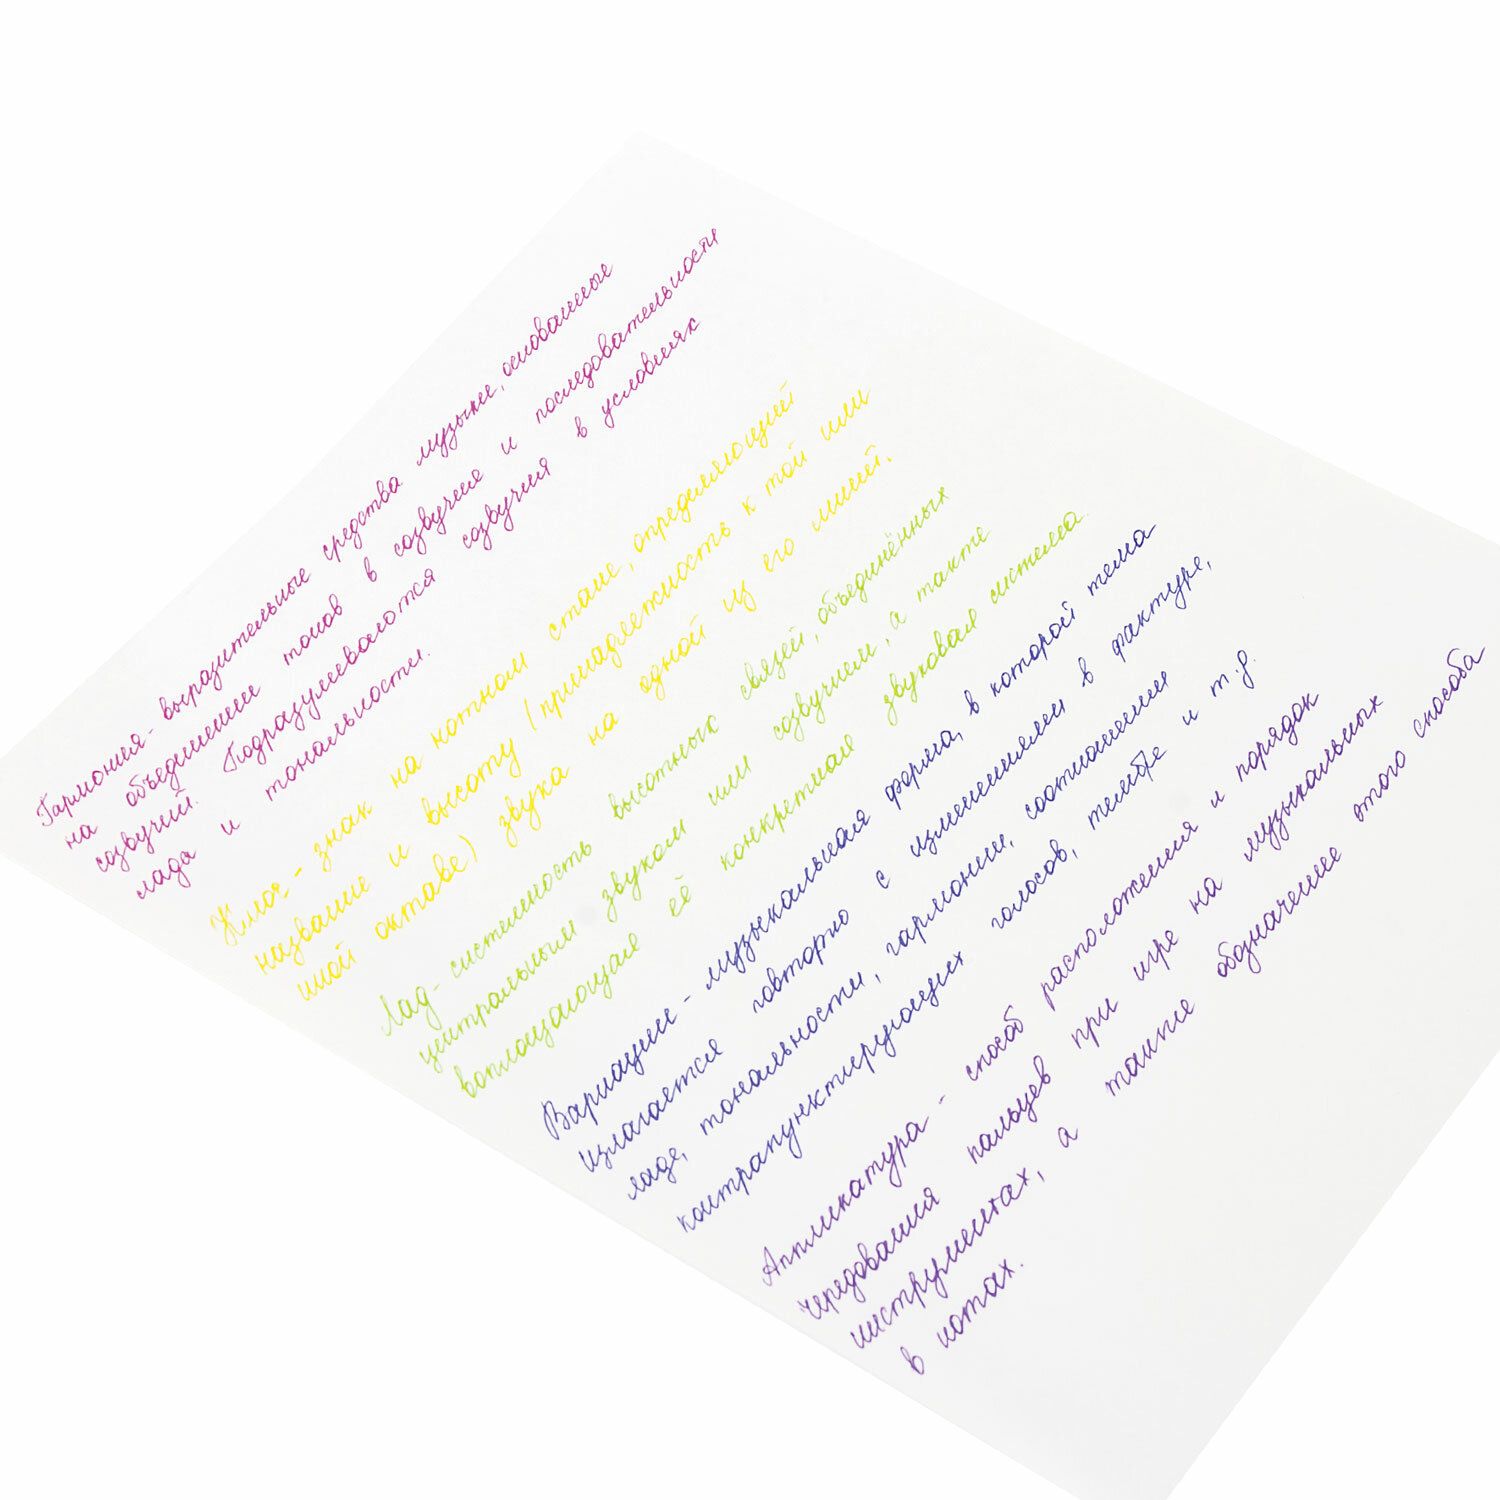 Гармония - выразительные средства музыки, основанные
на объединении тонов в созвучия и последовательности
созвучий. Подразумеваются созвучия в условиях
лада и тональности.
Ключ - знак на нотном стане, определяющий
название и высоту (принадлежность к той или
иной октаве) звука на одной из его линий.
Лад - системность высотных связей, объединённых
центральным звуком или созвучием, а также
воплощающая её конкретная звуковая система.
Вариации - музыкальная форма, в которой тема
излагается повторно с изменениями в фактуре,
ладе, тональности, гармонии, соотношении
контрапунктирующих голосов, тембре и т.д.
Аппликатура - способ расположения и порядок
чередования пальцев при игре на музыкальных
инструментах, а также обозначение этого способа
в нотах.